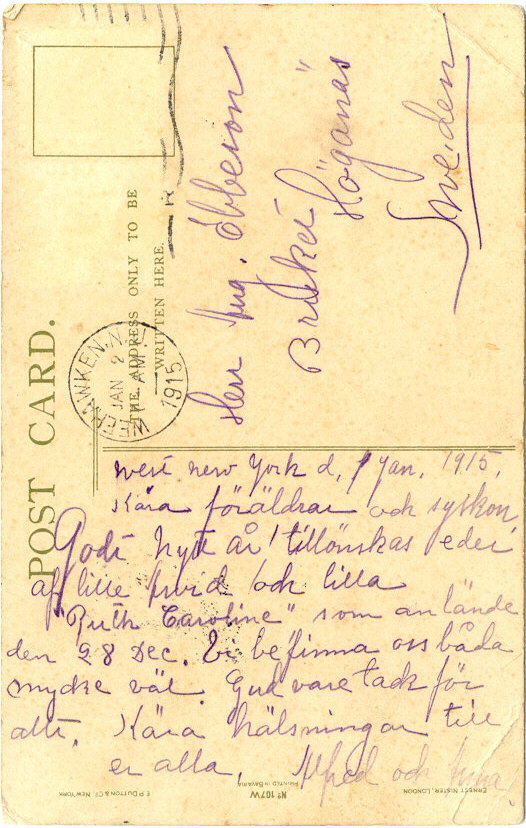 POST CARD.
THE ADDRESS ONLY TO BE
WRITTEN HERE.
WEEHAWKEN, N.J.
JAN 2
AM
1915
Herr Aug. Ebbeson
Bruket
Höganäs
Sweden
West New York d. 1 Jan. 1915.
Kära föräldrar och syskon
Godt Nytt År! tillönskas eder
af lille Arvid och lilla
"Ruth Caroline" som anlände
den 28 Dec. Vi befinna oss båda
mycke väl. Gud vare tack för
allt. Kära hälsningar till
er alla, Alfred och Anna.
E.P. DUTTON & Co. NEW YORK
No 107W
PRINTED IN BAVARIA
ERNEST NISTER, LONDON